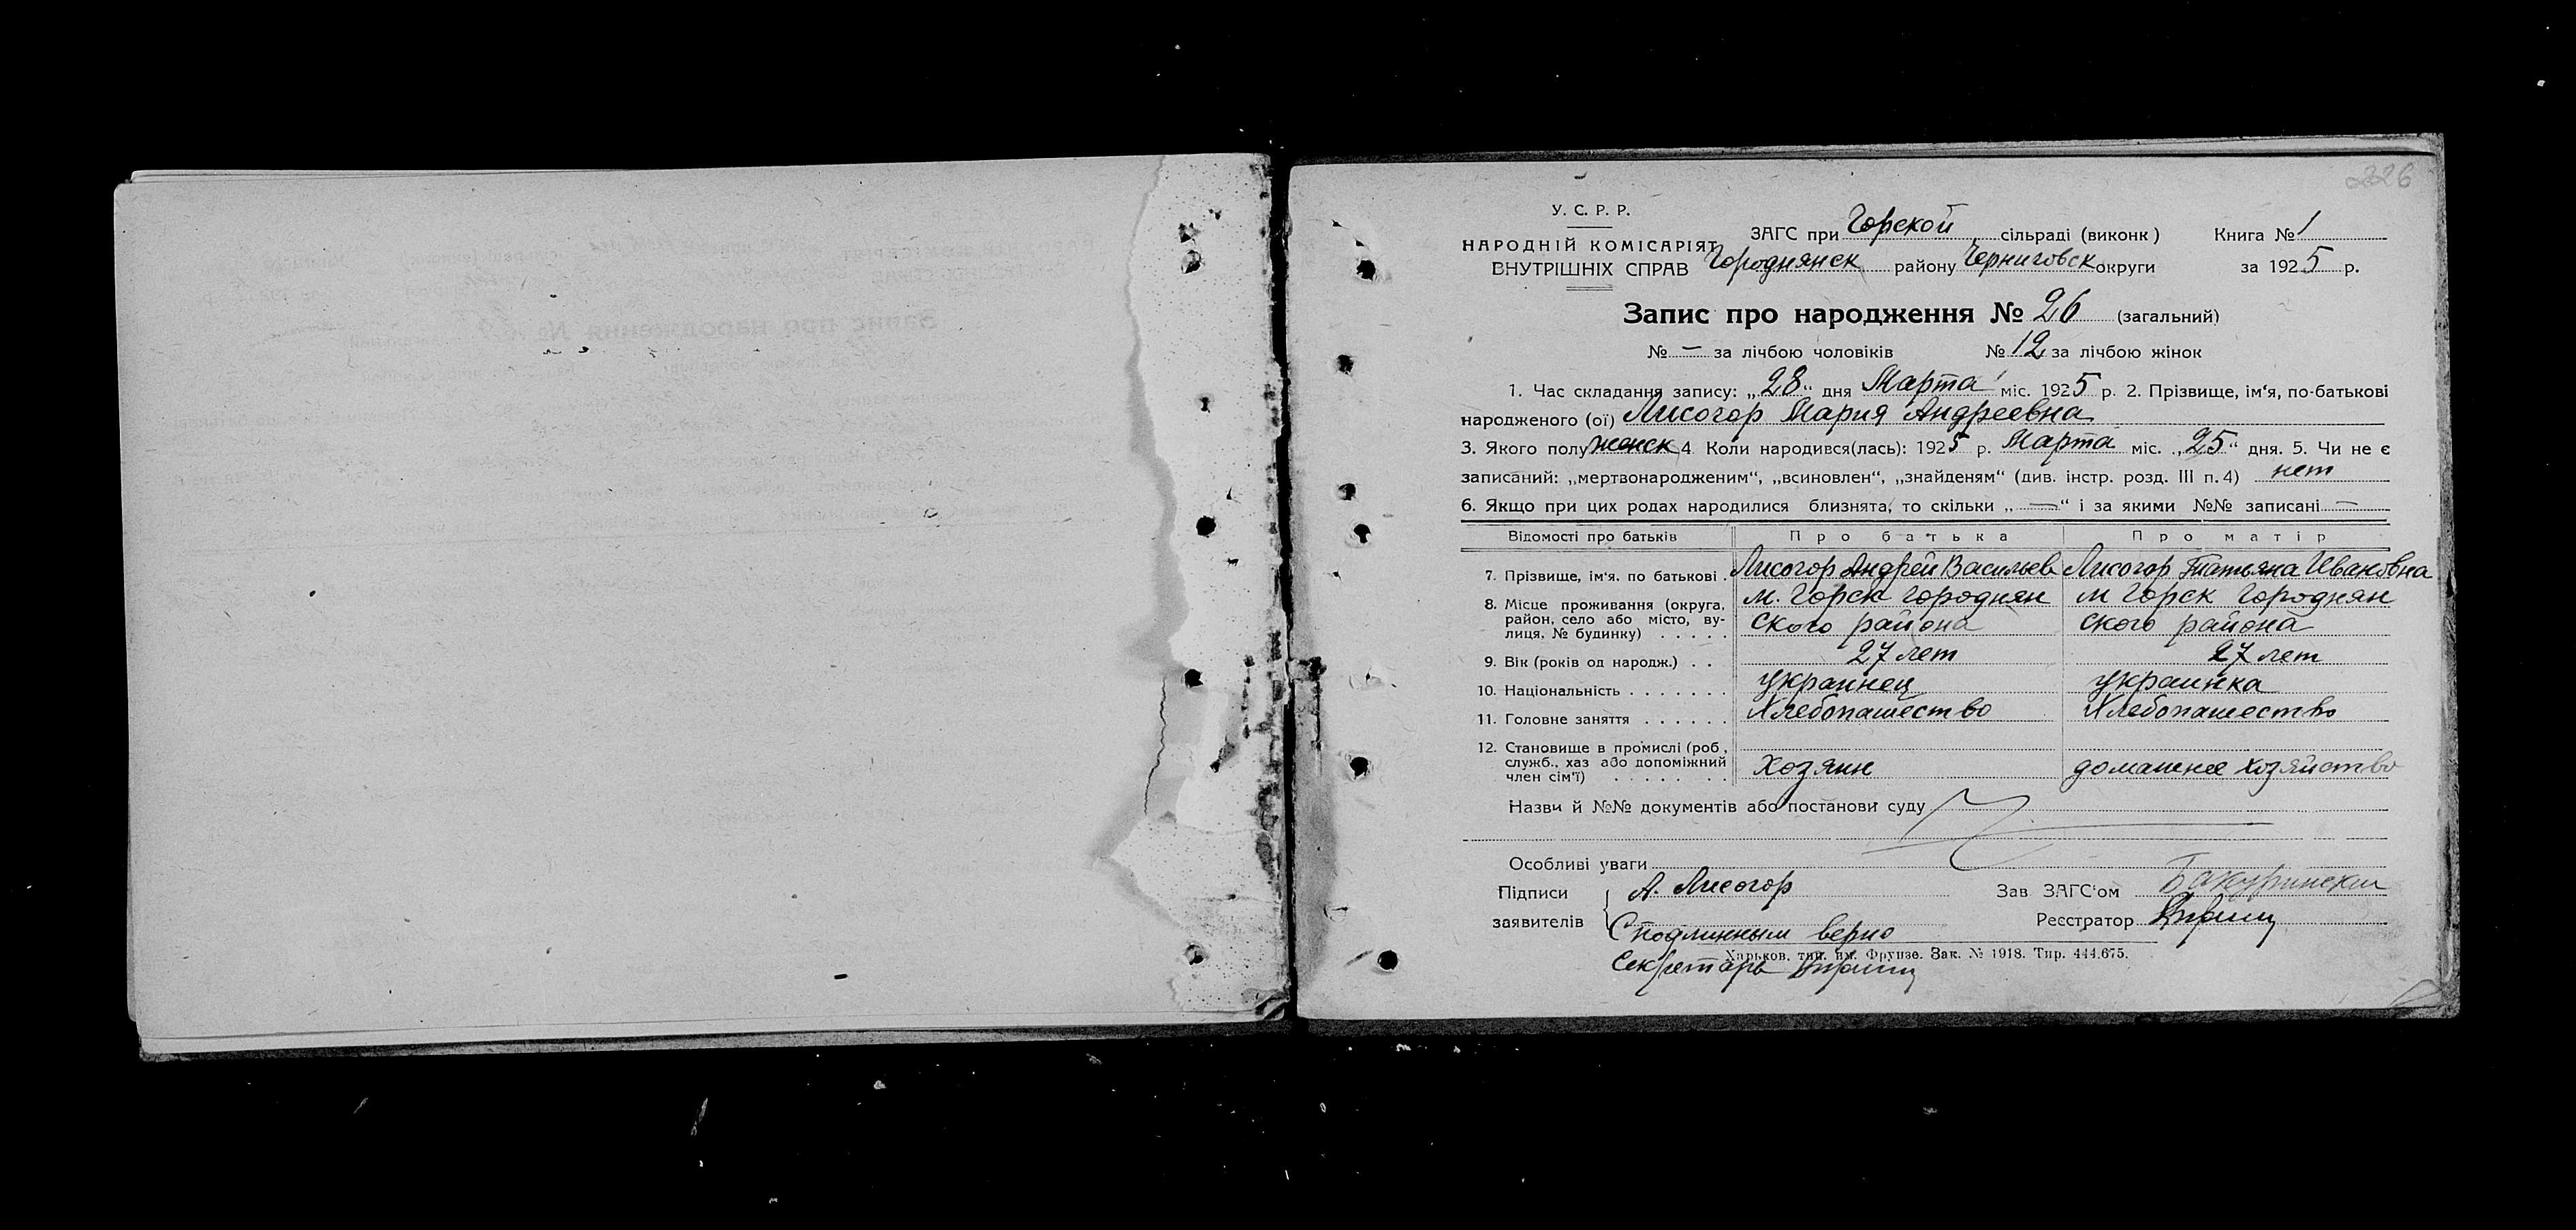 226
У. С. Р. Р.
НАРОДНІЙ КОМІСАРІЯТ
ВНУТРІШНІХ СПРАВ
ЗАГС при Горской сільраді (виконк) Книга № 1
Городнянск району Черниговск округи за 1925 р.
Запис про народження № 26 (загальний)
№ — за лічбою чоловіків № 12 за лічбою жінок
1. Час складання запису: „28“ дня Марта міс. 1925 р. 2. Прізвище, ім‘я, по-батькові
народженого (ої) Лисогор Мария Андреевна
3. Якого полу женск 4 Коли народився(лась): 1925 р. Марта міс. „25“ дня. 5. Чи не є
записаний: „мертвонародженим“, „всиновлен“, „знайденям“ (див. інстр. розд. III п. 4) нет
6. Якщо при цих родах народилися близнята, то скільки „—“ і за якими №№ записані —
Відомості про батьків Про батька Про матір
7. Прізвище, ім‘я. по батькові . Лисогор Андрей Васильев Лисогор Татьяна Ивановна
8. Місце проживання (округа, м. Горск Городнян м Горск Городнян
район, село або місто, ву- ского района ского района
лиця, № будинку) . . . . .
9. Вік (років од народж.) . . 27 лет 27 лет
10. Національність . . . . . . . украинец украинка
11. Головне заняття . . . . . . Хлебопашество Хлебопашество
12. Становище в промислі (роб,
служб., хаз або допоміжний Хозяин домашнее хозяйство
член сім‘ї) . . . . . . .
Назви й №№ документів або постанови суду
Особливі уваги
Підписи А. Лисогор Зав ЗАГС‘ом
заявителів Реєстратор
С подлинным верно
Харьков, тип. им. Фрунзе. Зак. № 1918. Тир. 444.675.
Секретарь